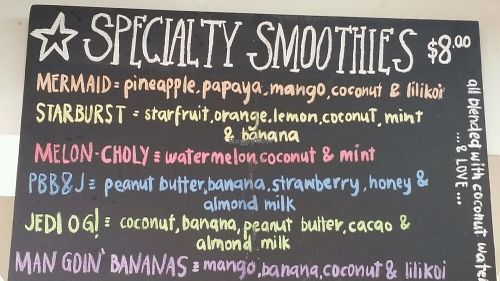 SPECIALTY SMOOTHIES $8.00
MERMAID = pineapple, papaya, mango, coconut & lilikoi
STARBURST = starfruit, orange, lemon, coconut, mint
& banana
MELON-CHOLY = watermelon, coconut & mint
PBB&J = peanut butter, banana, strawberry, honey &
almond milk
JEDI OG! = coconut, banana, peanut butter, cacao &
almond milk
MAN GOIN' BANANAS = mango, banana, coconut & lilikoi
all blended with coconut water
... & LOVE ...